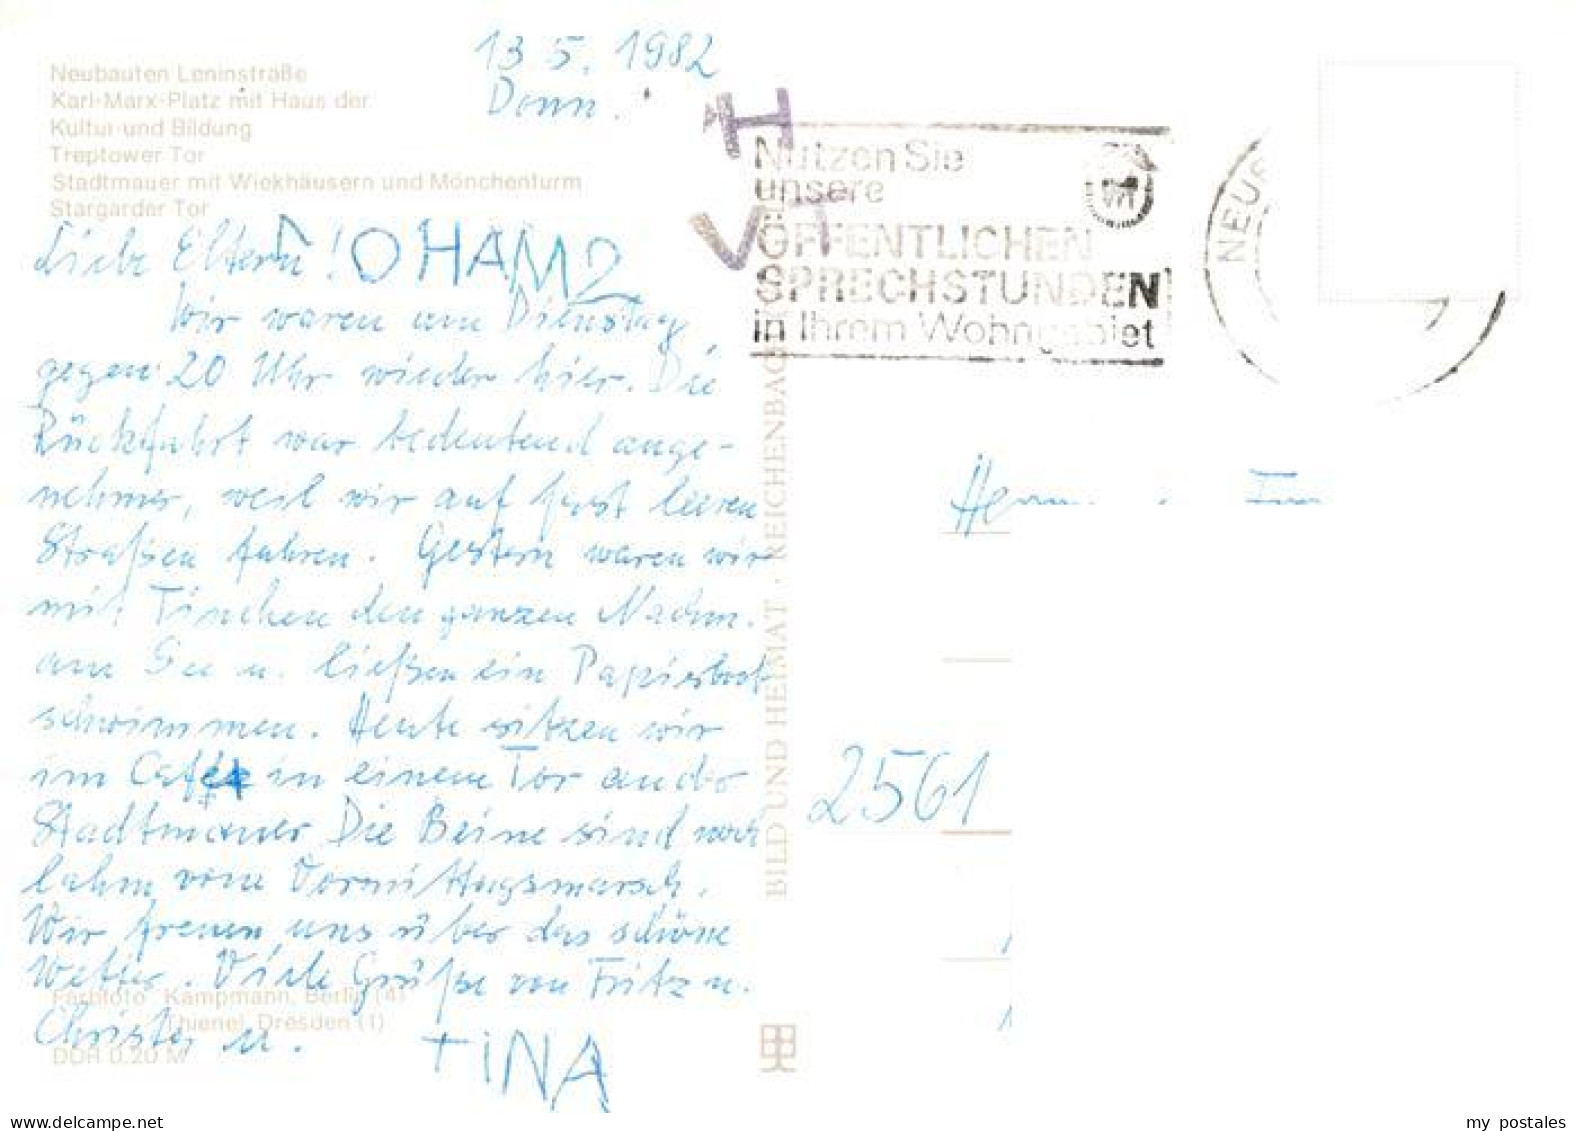 13 5. 1982
Donn.
Neubauten Leninstraße
Karl-Marx-Platz mit Haus der
Kultur und Bildung
Treptower Tor
Stadtmauer mit Wiekhäusern und Mönchenturm
Stargarder Tor
Liebe Eltern!
Wir waren am Dienstag
gegen 20 Uhr wieder hier. Die
Rückfahrt war bedeutend ange-
nehmer, weil wir auf fast leeren
Straßen fuhren. Gestern waren wir
mit Tinchen den ganzen Nachm.
am See u. ließen ein Papierboot
schwimmen. Heute sitzen wir
im Cafe in einem Tor an der
Stadtmauer Die Beine sind noch
lahm vom Vormittagsmarsch.
Wir freuen uns über das schöne
Wetter. Viele Grüße von Fritz u.
Christa u. TINA
Farbfoto Kampmann, Berlin (4)
Thienel, Dresden (1)
DDR 0.20 M
BILD UND HEIMAT · REICHENBACH
Nutzen Sie
unsere
ÖFFENTLICHEN
SPRECHSTUNDEN
in Ihrem Wohngebiet
NEUB
Herrn
2561
my postales